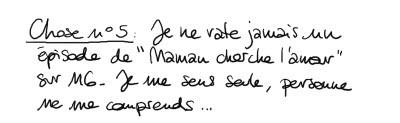 Chose n°5: Je ne rate jamais un
épisode de "Maman cherche l'amour"
sur M6. Je me sens seule, personne
ne me comprends...